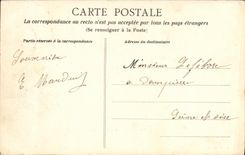 CARTE POSTALE
La correspondance au recto n'est pas acceptée par tous les pays étrangers
(Se renseigner à la Poste)
Partie réservée à la correspondance
Adresse du destinataire
Souvenir
E.
Monsieur Lefebvre
a
Seine et Oise